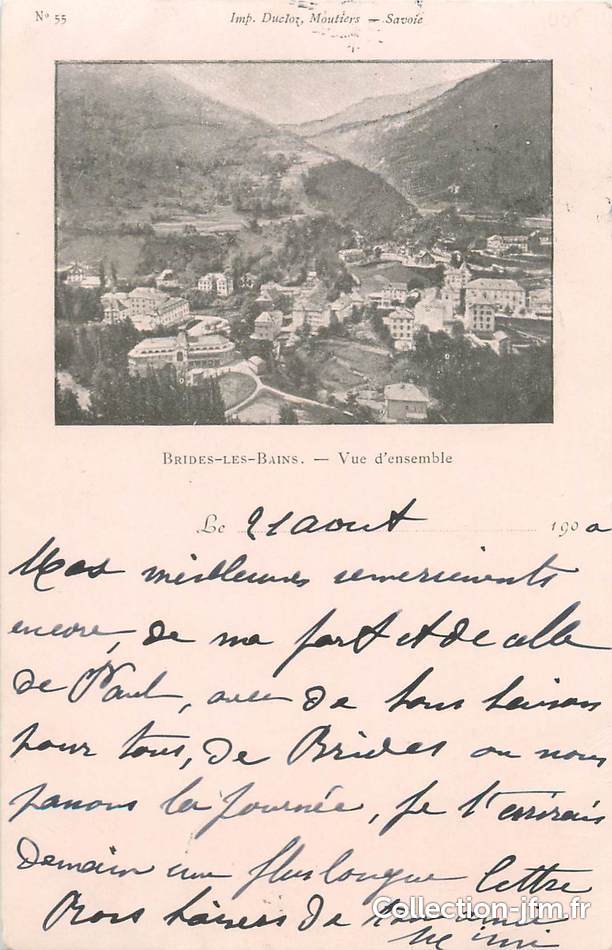 N° 55
Imp. Ducloz, Moutiers — Savoie
BRIDES-LES-BAINS. — Vue d'ensemble
Le 21 aout 1900
Mes meilleures remerciements
encore, de ma part et de celle
de Paul, avec de bons baisers
pour tous, de Brides ou nous
passons la journée, je t'écrirais
demain une plus longue lettre
Bons baisers de ton amie
Collection-jfm.fr